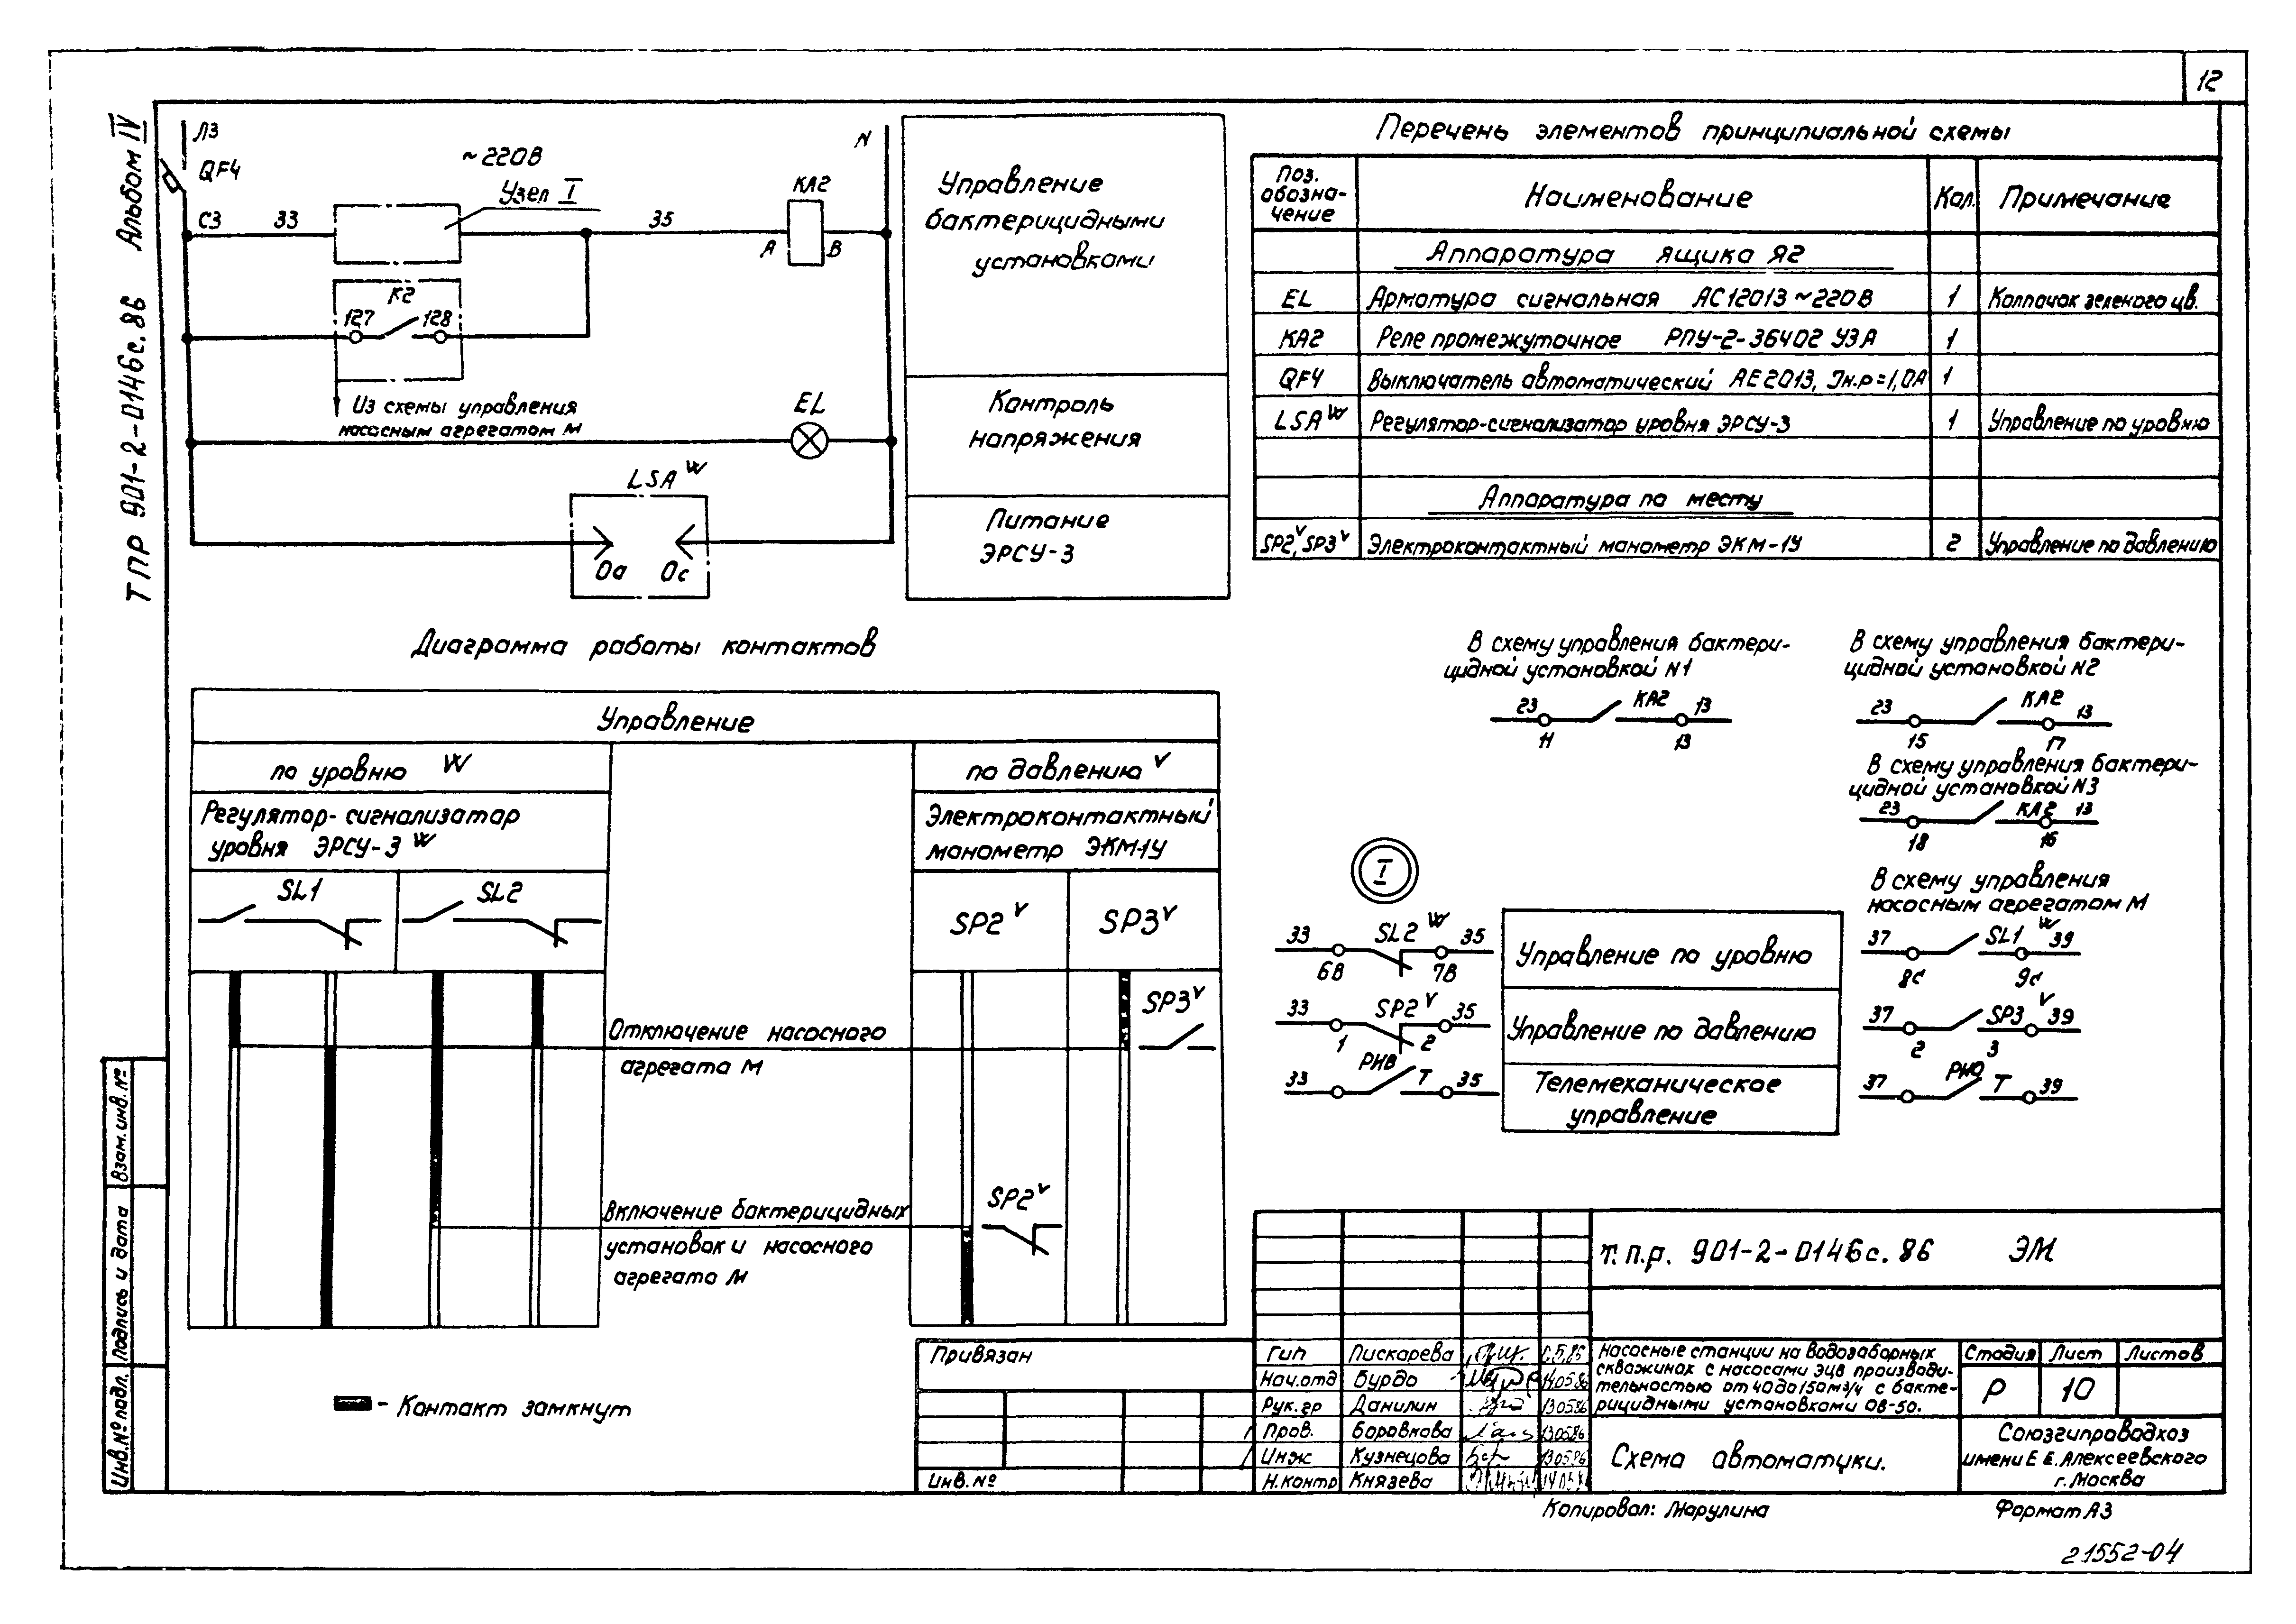 12
ТПР 901-2-0146с.86 Альбом IV
Л3
QF4
~220В
Узел I
N
С3
33
35
КА2
А
В
К2
127
128
Из схемы управления
насосным агрегатом М
EL
LSA W
0а 0с
Управление
бактерицидными
установками
Контроль
напряжения
Питание
ЭРСУ-3
Перечень элементов принципиальной схемы
Поз. обозна-чение Наименование Кол. Примечание
Аппаратура ящика Я2
EL Арматура сигнальная АС12013 ~220В 1 Колпачок зеленого цв.
КА2 Реле промежуточное РПУ-2-36402 У3А 1
QF4 Выключатель автоматический АЕ2013, Iн.р=1,0А 1
LSA W Регулятор-сигнализатор уровня ЭРСУ-3 1 Управление по уровню
Аппаратура по месту
SP2 V, SP3 V Электроконтактный манометр ЭКМ-1У 2 Управление по давлению
Диаграмма работы контактов
Управление
по уровню W
по давлению V
Регулятор-сигнализатор
уровня ЭРСУ-3 W
Электроконтактный
манометр ЭКМ-1У
SL1
SL2
SP2 V
SP3 V
SP3 V
Отключение насосного
агрегата М
SP2 V
Включение бактерицидных
установок и насосного
агрегата М
- Контакт замкнут
В схему управления бактери-
цидной установкой N1
23 КА2 13
11 13
В схему управления бактери-
цидной установкой N2
23 КА2 13
15 17
В схему управления бактери-
цидной установкой N3
23 КА2 13
18 16
I
33 SL2 W 35
6В 7В
Управление по уровню
33 SP2 V 35
1 2
Управление по давлению
33 РИВ Т 35
Телемеханическое
управление
В схему управления
насосным агрегатом М
37 SL1 W 39
8с 9с
37 SP3 V 39
2 3
37 РИО Т 39
Взам.инв.№
Подпись и дата
Инв.№ подл.
т.п.р. 901-2-0146с.86 ЭМ
Привязан
Инв.№
Гип Пискарева
Нач.отд Бурдо 14.05.86
Рук.гр Данилин 13.05.86
Пров. Боровкова 13.05.86
Инж Кузнецова 13.05.86
Н.контр Князева
Насосные станции на водозаборных
скважинах с насосами ЭЦВ производи-
тельностью от 40 до 150 м³/ч с бакте-
рицидными установками ОВ-50.
Стадия Лист Листов
Р 10
Схема автоматики.
Союзгипроводхоз
имени Е.Е.Алексеевского
г.Москва
Копировал: Марулина
Формат А3
21552-04